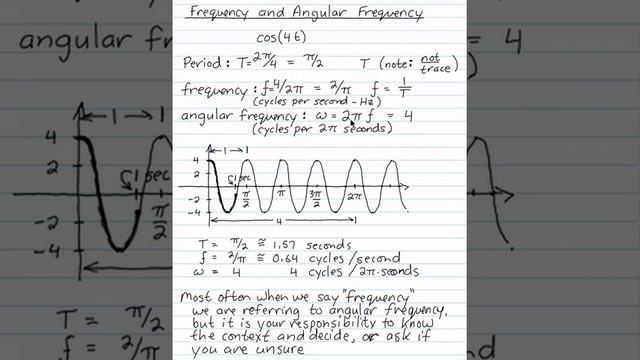 Frequency and Angular Frequency
cos(4t)
Period: T = 2π/4 = π/2 T (note: not trace)
frequency: f = 4/2π = 2/π f = 1/T
(cycles per second - Hz)
angular frequency: ω = 2πf = 4
(cycles per 2π seconds)
1
4
2
-2
-4
1 sec
π/2
π
3π/2
2π
4
T = π/2 ≅ 1.57 seconds
f = 2/π ≅ 0.64 cycles/second
ω = 4 4 cycles/2π·seconds
Most often when we say "frequency"
we are referring to angular frequency,
but it is your responsibility to know
the context and decide, or ask if
you are unsure